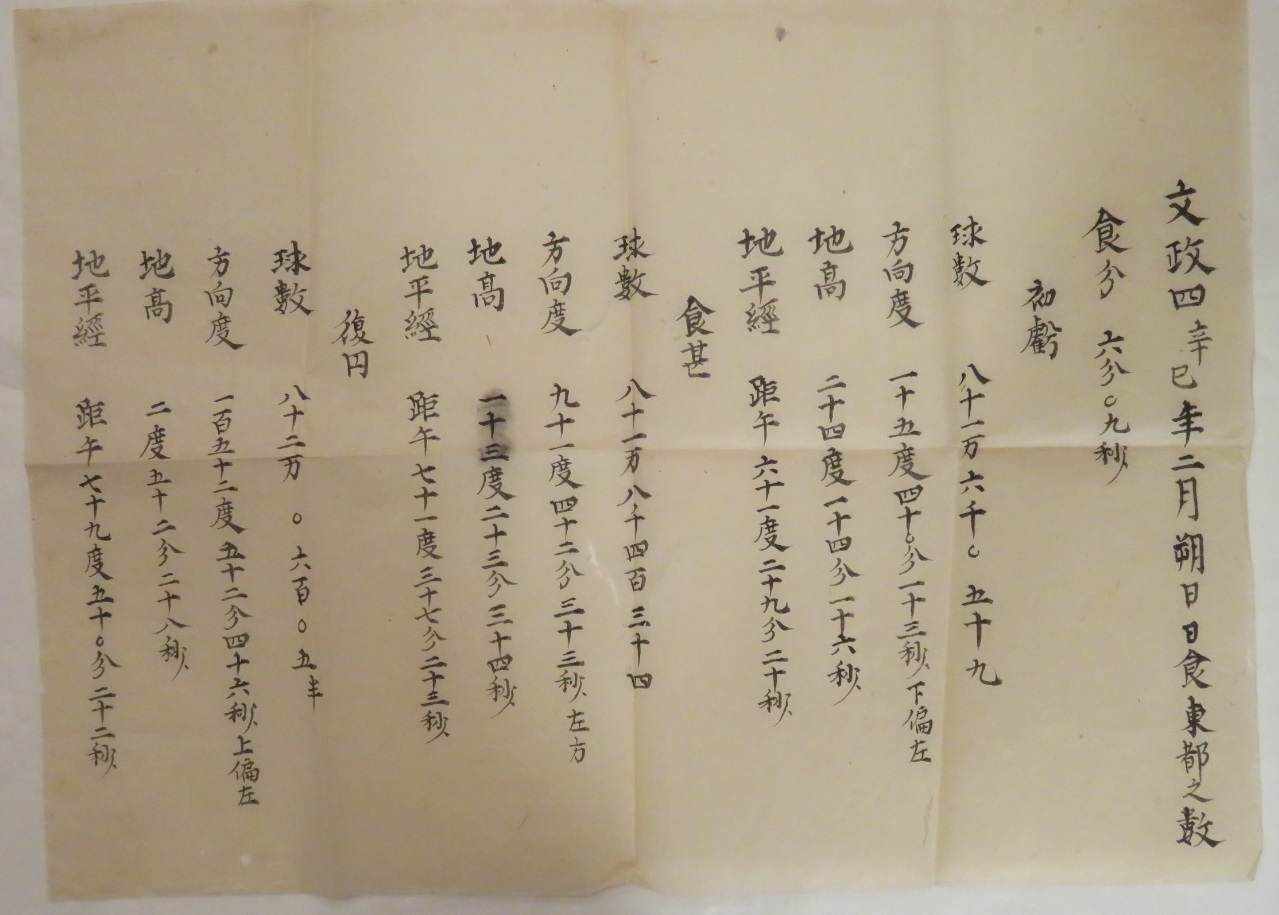 文政四辛巳年二月朔日日食東都之數
食分 六分〇九秒
初虧
球数 八十一万六千〇五十九
方向度 一十五度四十〇分一十三秒 下偏左
地高 二十四度一十四分一十六秒
地平經 距午六十一度二十九分二十秒
食甚
球数 八十一万八千四百三十四
方向度 九十一度四十二分三十三秒 左方
地高 一十三度二十三分三十四秒
地平經 距午七十一度三十七分二十三秒
復円
球数 八十二万〇六百〇五半
方向度 一百五十二度五十二分四十六秒 上偏左
地高 二度五十二分二十八秒
地平經 距午七十九度五十〇分二十二秒